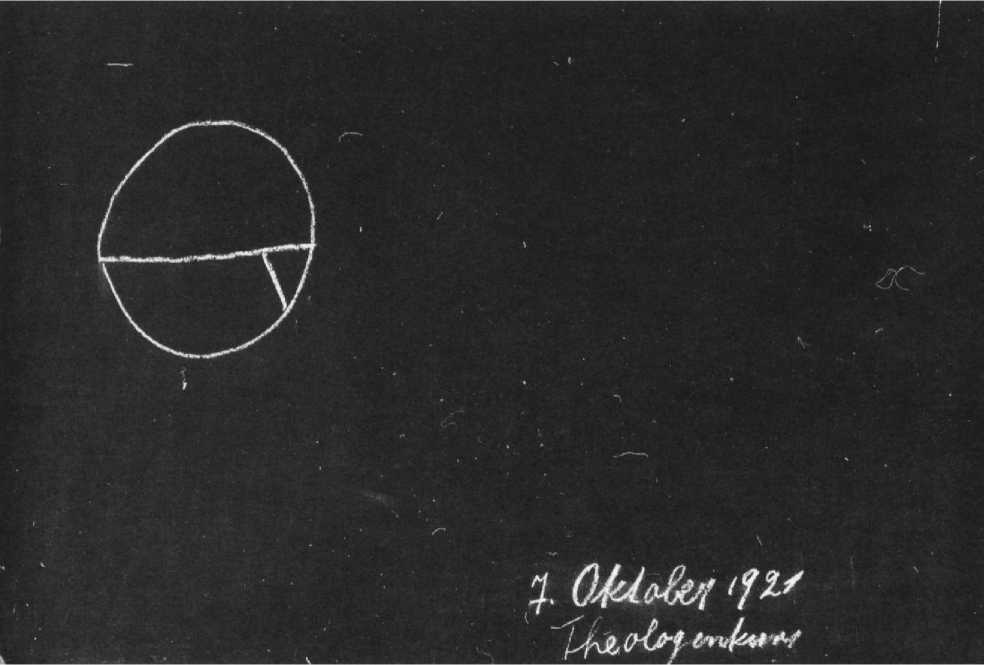 7. Oktober 1921
Theologenkurs